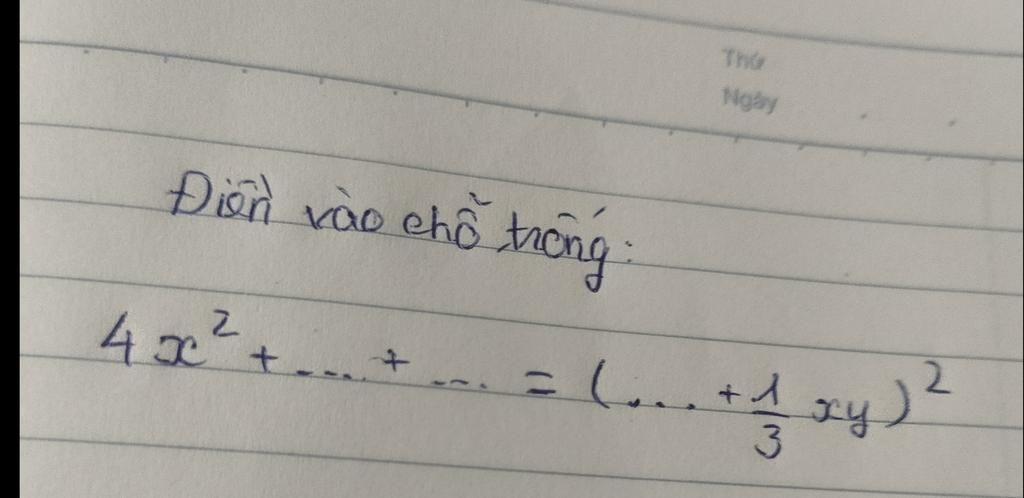 Thứ
Ngày
Điền vào chỗ trống:
4x² + .... + .... = (.... + 1/3 xy)²